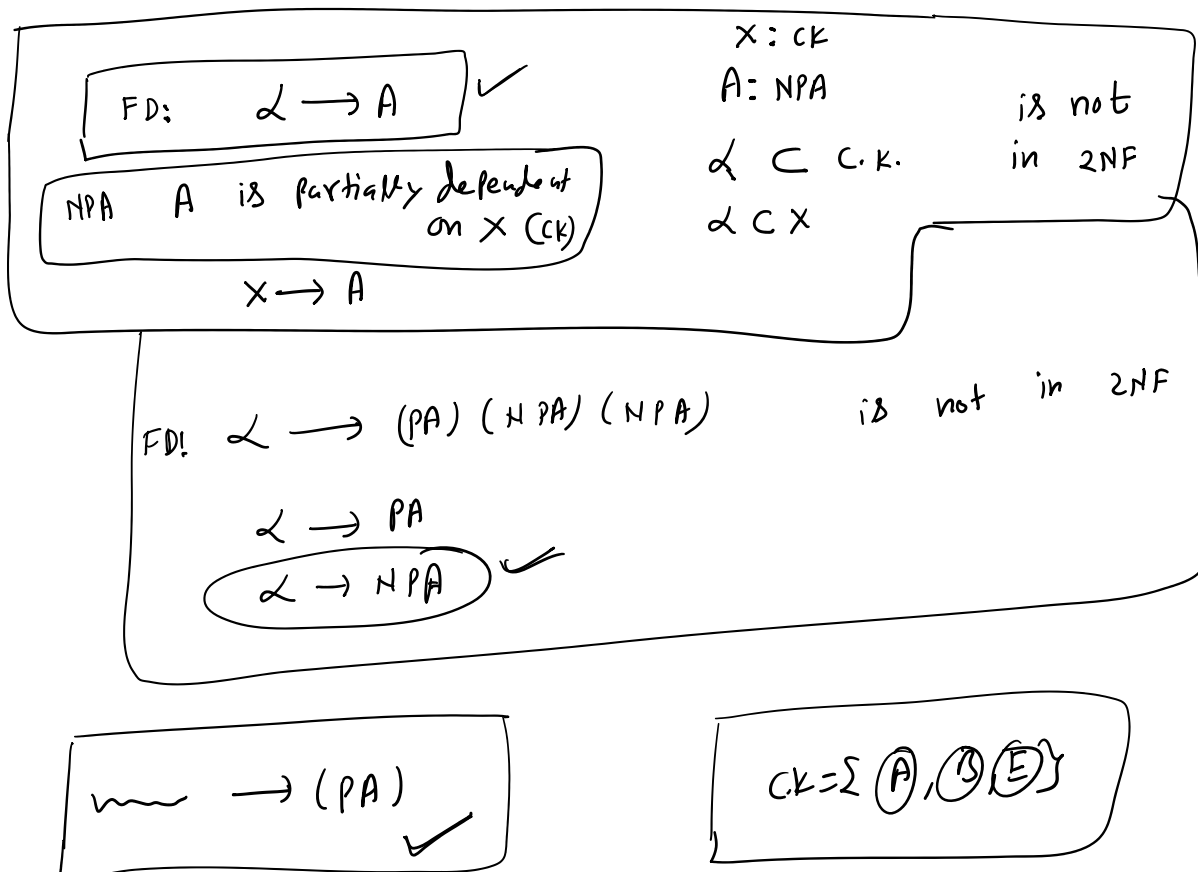 FD: α → A ✓
NPA A is partially dependent
on X (CK)
X → A
X : CK
A : NPA
α ⊂ C.K.
α ⊂ X
is not
in 2NF
FD: α → (PA) (NPA) (NPA) is not in 2NF
α → PA
α → NPA ✓
→ (PA) ✓
C.K = { A, B, E }